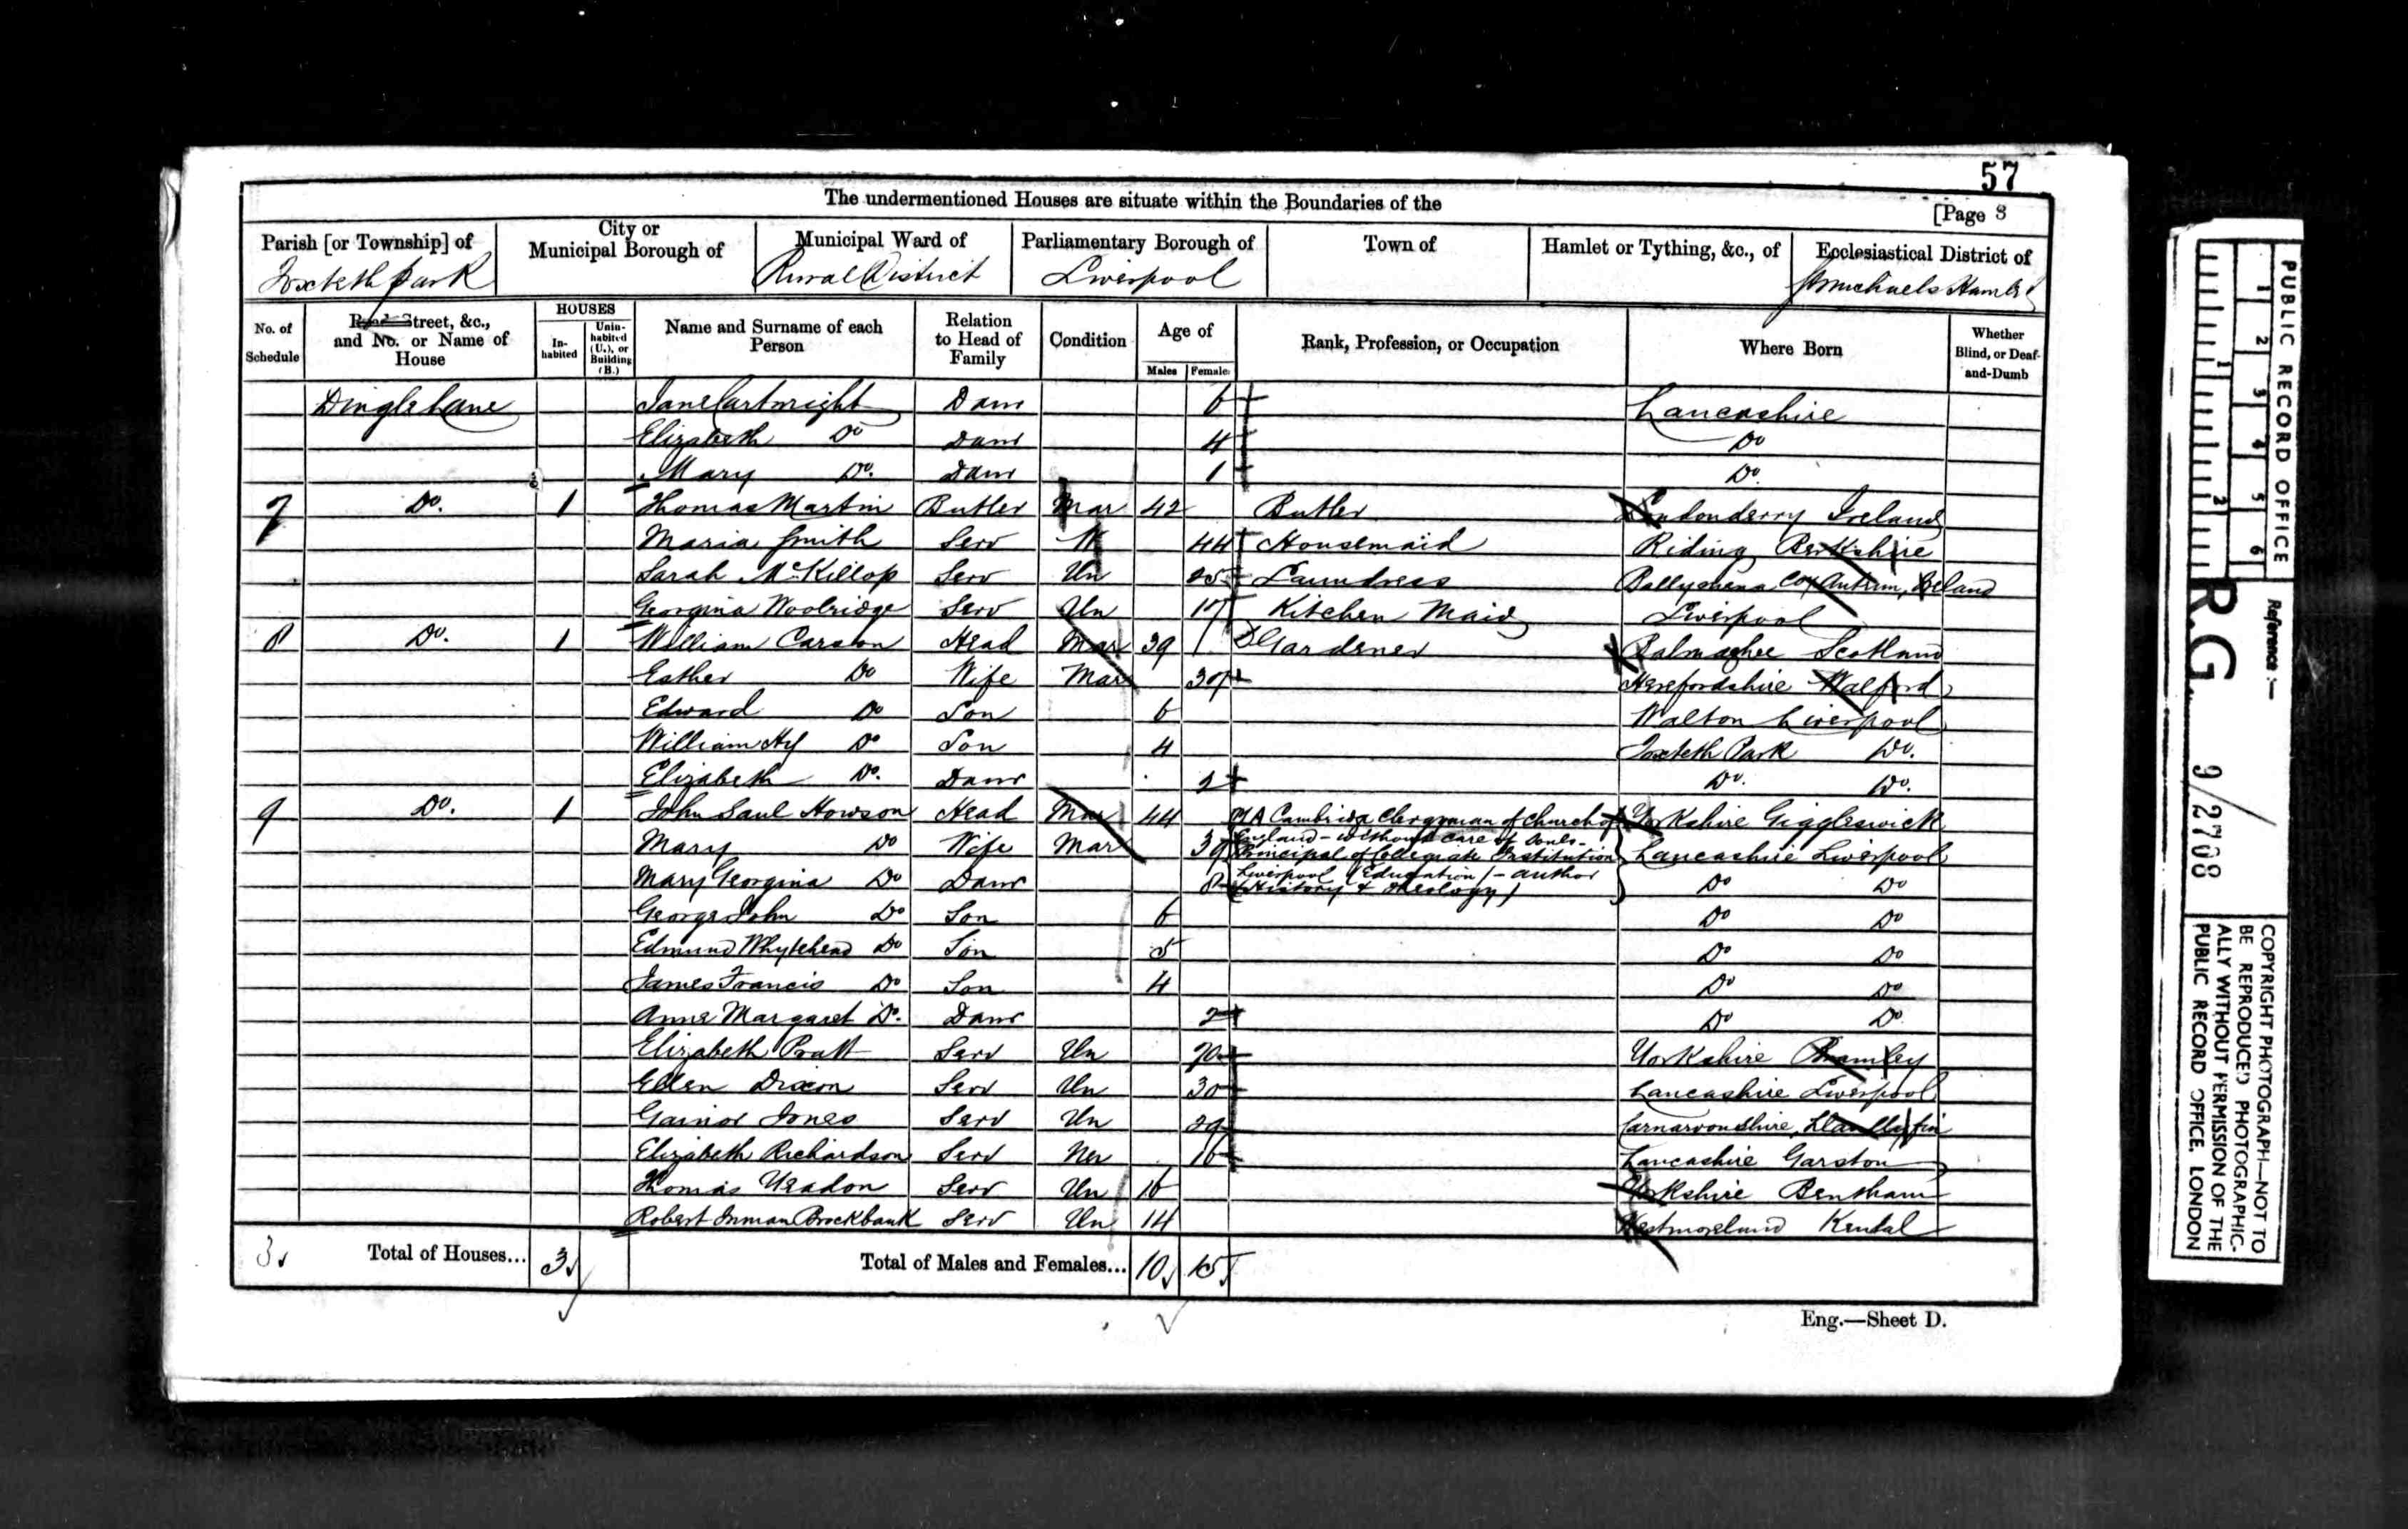 57
The undermentioned Houses are situate within the Boundaries of the
[Page 8
Parish [or Township] of
Toxteth Park
City or Municipal Borough of
Municipal Ward of
Rural District
Parliamentary Borough of
Liverpool
Town of
Hamlet or Tything, &c., of
Ecclesiastical District of
St Michaels Hamlet
No. of Schedule
Road, Street, &c., and No. or Name of House
HOUSES
In-habited
Unin-habited (U.), or Building (B.)
Name and Surname of each Person
Relation to Head of Family
Condition
Age of
Males
Females
Rank, Profession, or Occupation
Where Born
Whether Blind, or Deaf-and-Dumb
Dingle Lane Jane Cartwright Daur 6 Lancashire
Elizabeth Do Daur 4 Do
Mary Do. Daur 1 Do.
7 Do. 1 Thomas Martin Butler Mar 42 Butler Londonderry Ireland
Maria Smith Serv W 44 Housemaid Riding Berkshire
Sarah McKillop Serv Un 25 Laundress Ballymena Coy Antrim, Ireland
Georgina Woolridge Serv Un 17 Kitchen Maid Liverpool
8 Do. 1 William Carson Head Mar 39 Gardener Balmaghee Scotland
Esther Do Wife Mar 37 Herefordshire Walford
Edward Do Son 6 Walton Liverpool
William Hy Do Son 4 Toxteth Park Do.
Elizabeth Do. Daur 2 Do. Do.
9 Do. 1 John Saul Howson Head Mar 44 MA Cambridge Clergyman of Church of Yorkshire Giggleswick
England - without care of Souls -
Mary Do Wife Mar 39 Principal of Collegiate Institution Lancashire Liverpool
Liverpool (Education) - author
Mary Georgina Do Daur 8 (History & theology) Do Do
George John Do Son 6 Do Do
Edmund Whytehead Do Son 5 Do Do
James Francis Do Son 4 Do Do
Anne Margaret Do. Daur 2 Do Do
Elizabeth Pratt Serv Un 70 Yorkshire Bramley
Ellen Dixon Serv Un 30 Lancashire Liverpool
Gainor Jones Serv Un 29 Carnarvonshire,
Elizabeth Richardson Serv Un 16 Lancashire Garston
Thomas Serv Un 16 Yorkshire Bentham
Robert Inman Brockbank Serv Un 14 Westmoreland Kendal
3 Total of Houses... 3 Total of Males and Females... 10 15
Eng.—Sheet D.
PUBLIC RECORD OFFICE
1 2 3 4 5 6
1 2
Reference:—
R.G. 9/2708
COPYRIGHT PHOTOGRAPH—NOT TO
BE REPRODUCED PHOTOGRAPHIC-
ALLY WITHOUT PERMISSION OF THE
PUBLIC RECORD OFFICE, LONDON